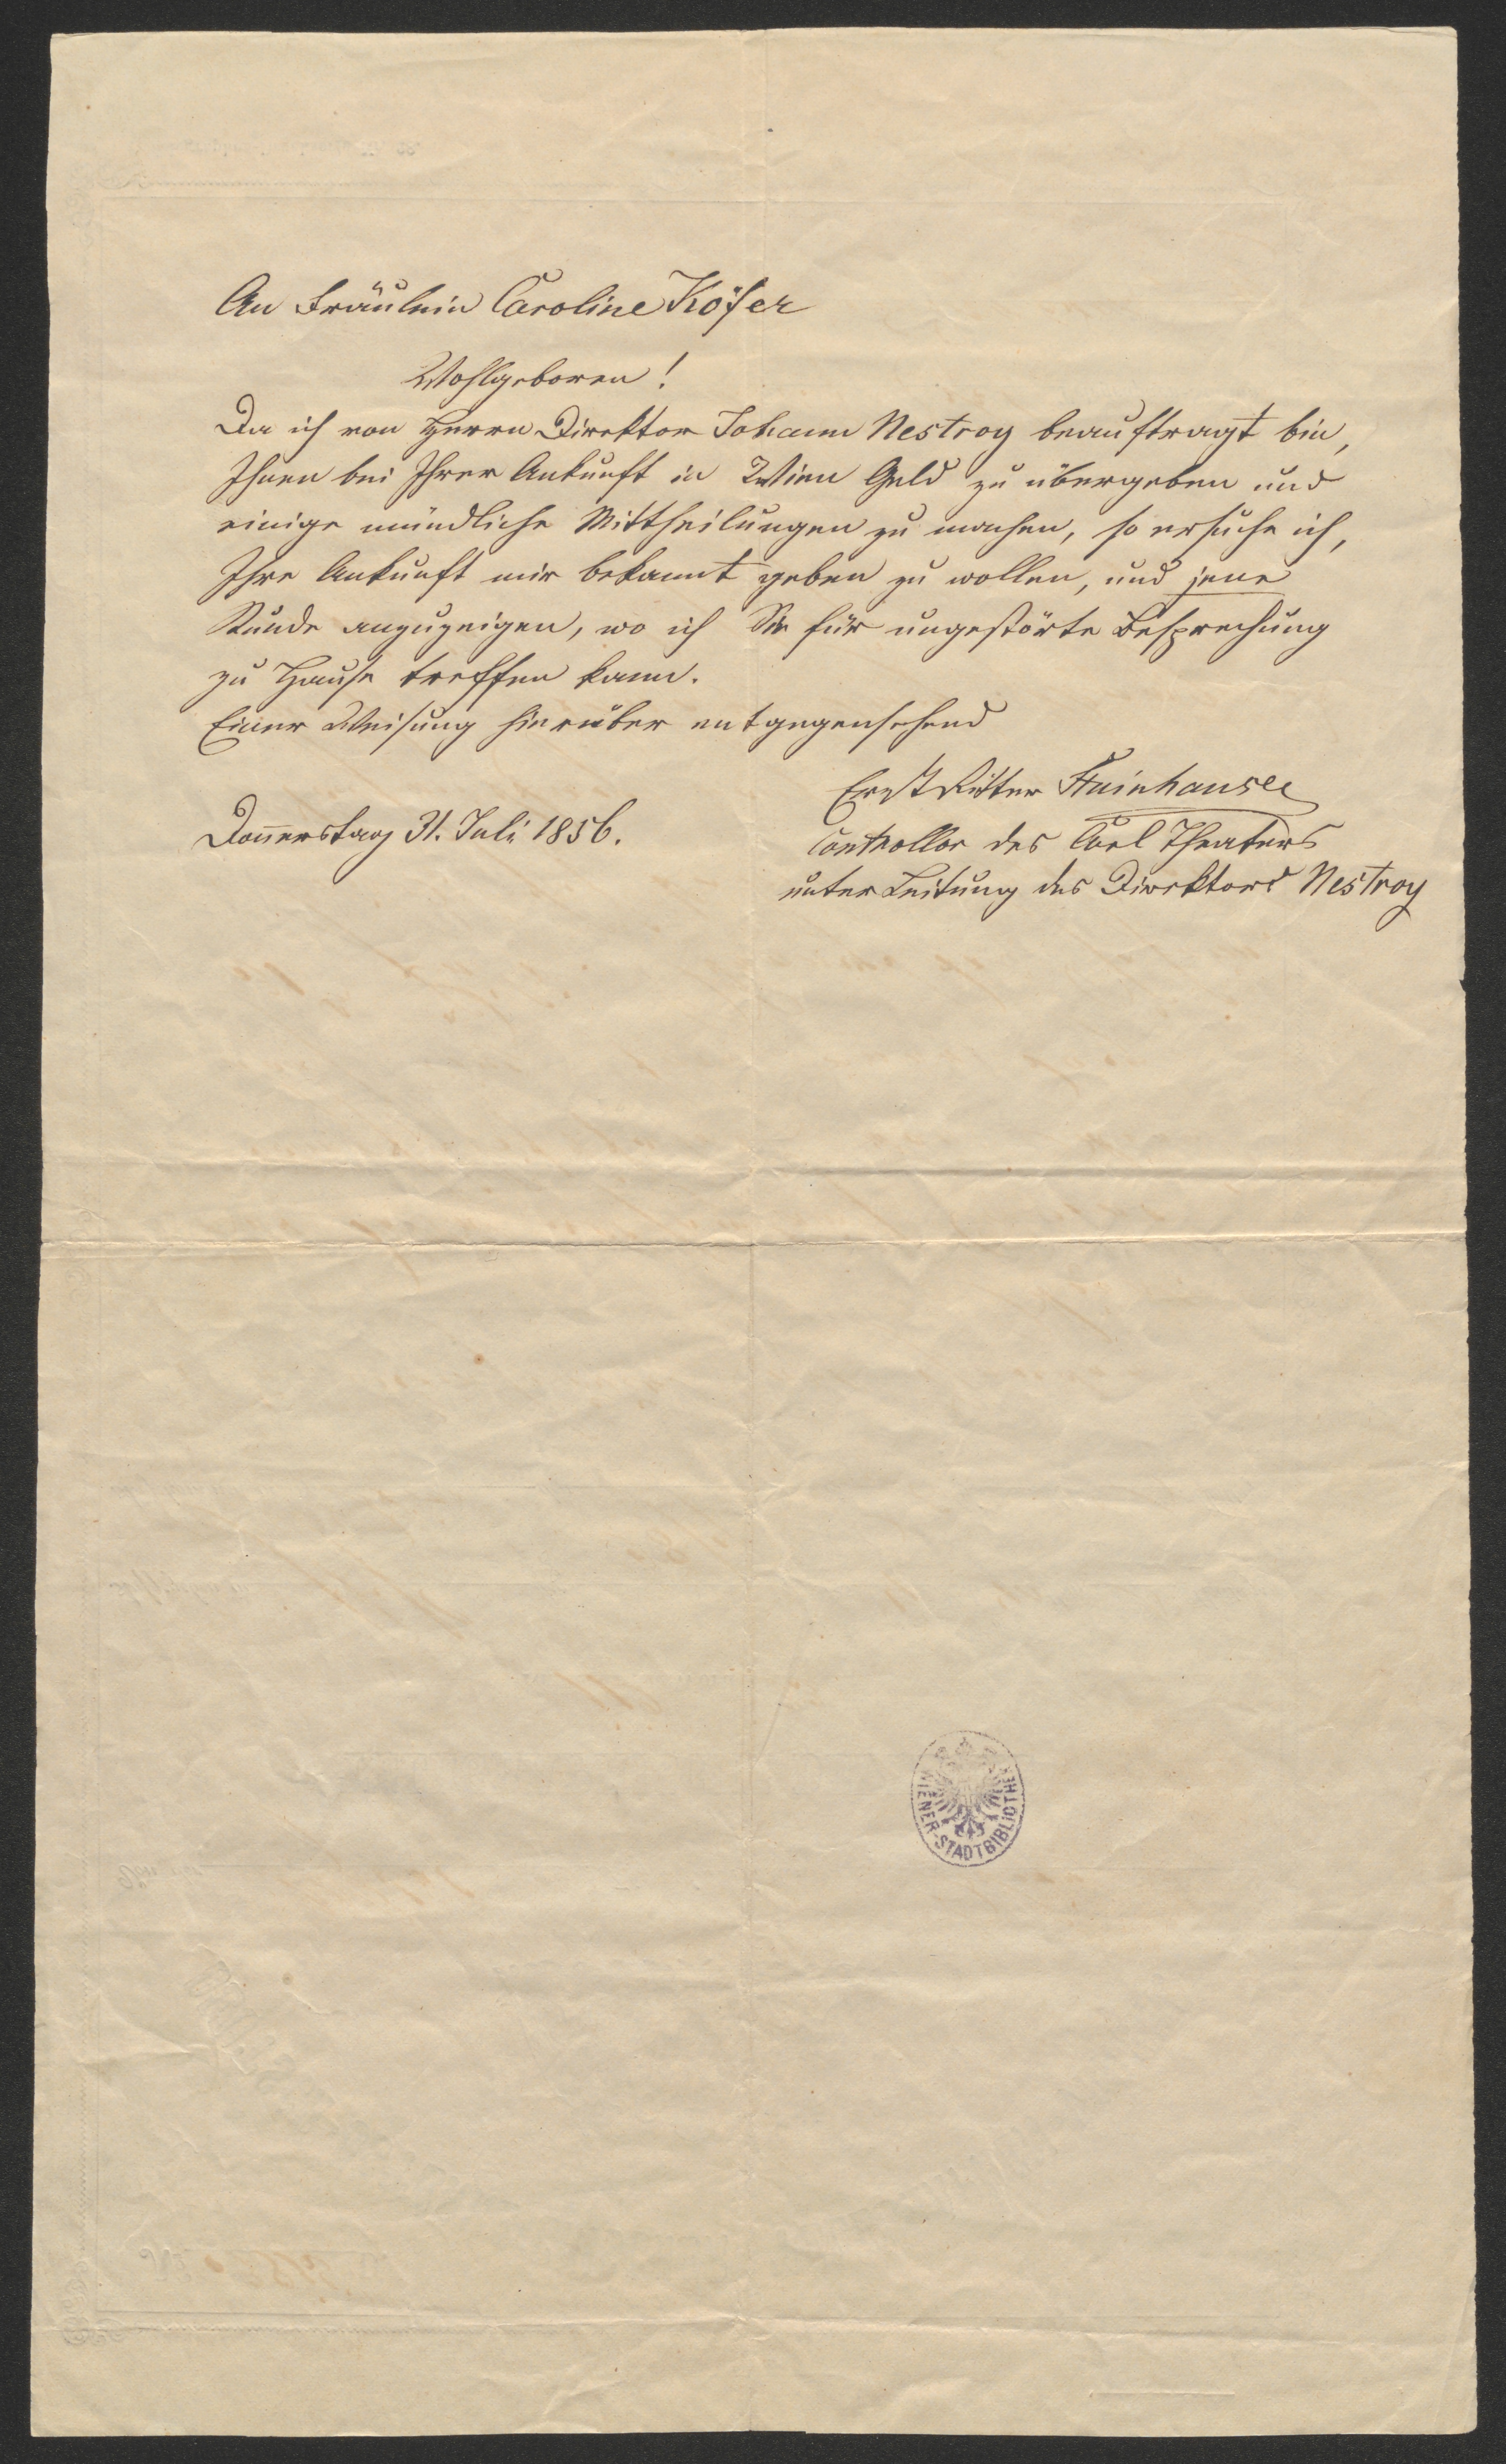 An Fräulein Caroline Köfer
Wohlgeboren!
Da ich von Herrn Direktor Johann Nestroy beauftragt bin,
Ihnen bei Ihrer Ankunft in Wien Geld zu übergeben und
einige mündliche Mittheilungen zu machen, so ersuche ich,
Ihre Ankunft mir bekannt geben zu wollen, und jene
Stunde anzuzeigen, wo ich Sie für ungestörte Besprechung
zu Hause treffen kann.
Einer Weisung hierüber entgegensehend
Ernst Ritter Stainhauser
Donnerstag 31. Juli 1856.
Controllor des Carl Theaters
unter Leitung des Direktors Nestroy
WIENER-STADTBIBLIOTHEK